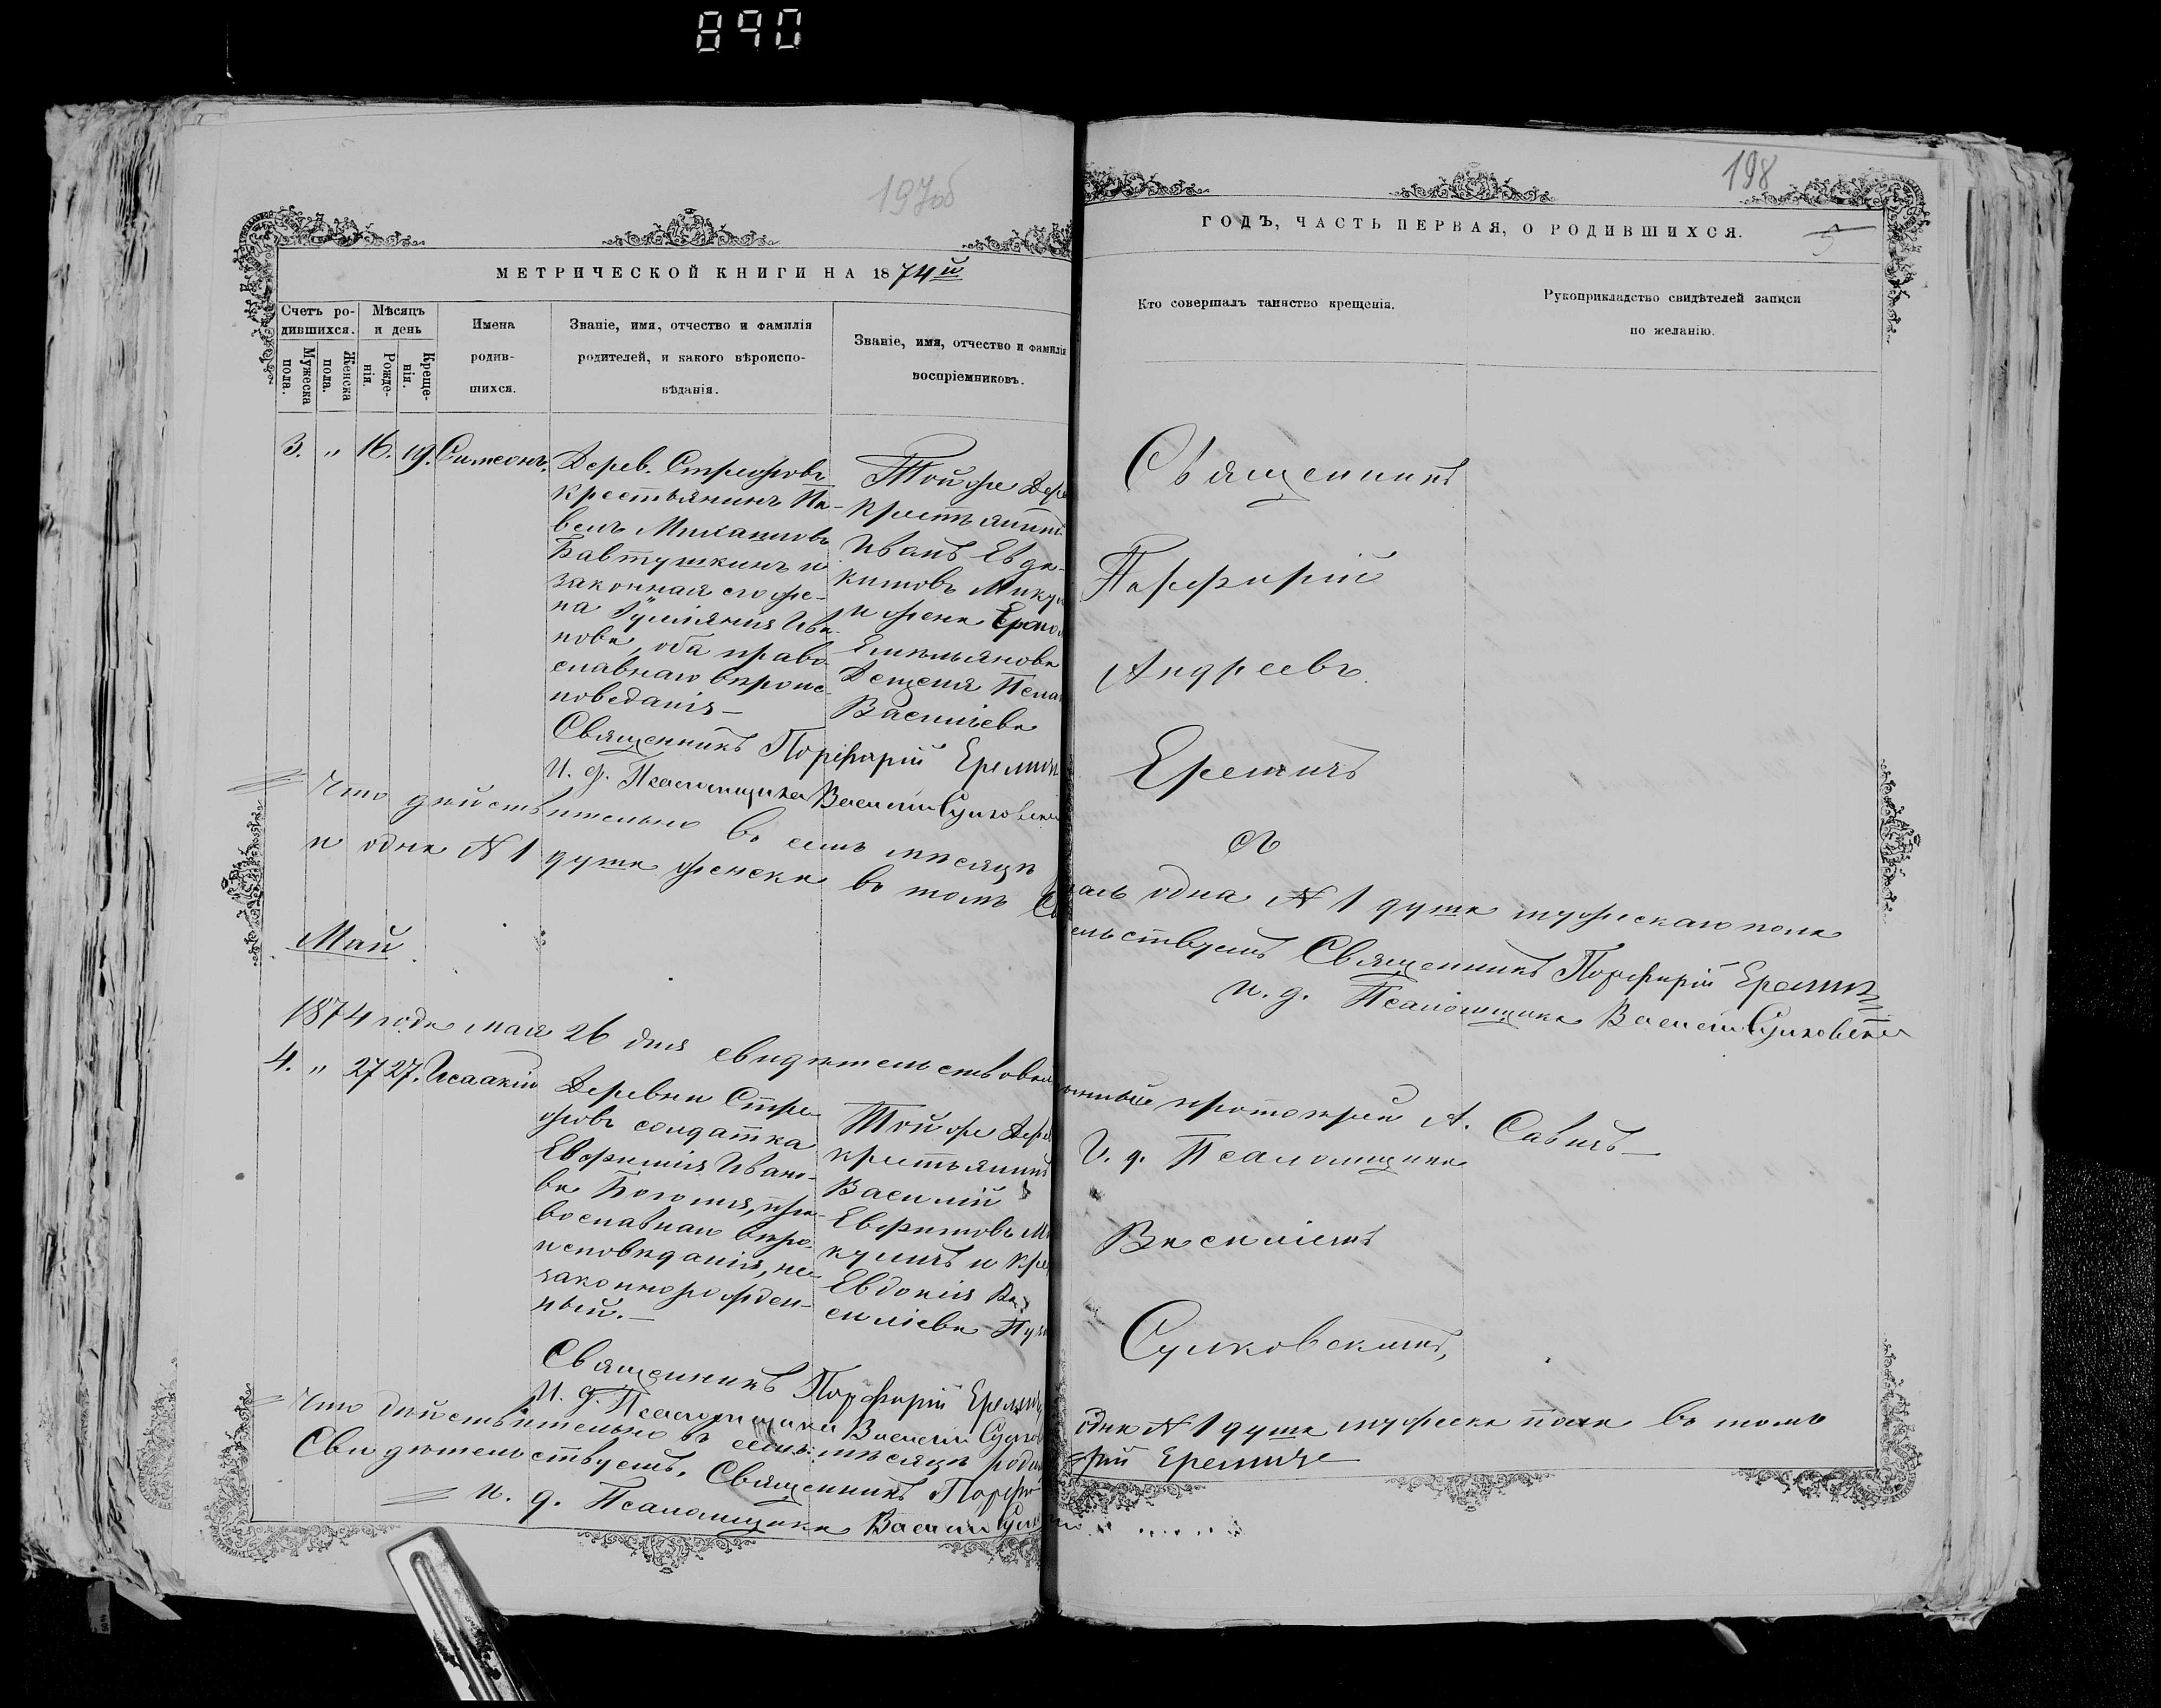 890
197об
МЕТРИЧЕСКОЙ КНИГИ НА 1874й
Счетъ ро-
дившихся.
Мужеска
пола.
Женска
пола.
Мѣсяцъ
и день
Рожде-
нія.
Креще-
нія.
Имена
родив-
шихся.
Званіе, имя, отчество и фамилія
родителей, и какого вѣроиспо-
вѣданія.
Званіе, имя, отчество и фамилія
воспріемниковъ.
3. " 16. 19. Симеонъ.
Дерев.
крестьянинъ Па-
велъ Михаиловъ
Бавтушкинъ и
законная его же-
на Іуліянія Ива-
нова, оба право-
славнаго вѣроис-
поведанія —
Той же Дере
крестьянинъ
Иванъ Евдо-
кимовъ Мику
и жена
Емельянова
Василіева
Священникъ Порфирій Еремин
И. д. Псаломщика Василій Сулковскій
Что дѣйствительно въ семъ мѣсяцѣ
и одна № 1 душа женска въ томъ
Май
1874 года мая 26 дня свидѣтельствовал
4. " 27 27. Исаакій
Деревни Стре-
жовъ солдатка
Евфимія Ивано-
ва пра-
вославнаго вѣро-
исповѣданія, не-
законнорожден-
ный. —
Той же Дере
крестьянинъ
Василій
Евфимовъ Ми
кулинъ и кре
Евдокія Ва-
силіева
Священникъ Порфирій Еремин
И. д. Псаломщика Василій Сулков
Что дѣйствительно въ семъ мѣсяцѣ роди
Свидѣтельствуетъ. Священникъ Порфи
и. д. Псаломщика Василій Сулк
198
ГОДЪ, ЧАСТЬ ПЕРВАЯ, О РОДИВШИХСЯ.
Кто совершалъ таинство крещенія.
Рукоприкладство свидѣтелей записи
по желанію.
Священникъ
Порфирій
Андреевъ
Ереминъ
съ
алъ одна № 1 душа мужескаго пола
ельствуетъ Священникъ Порфирій Еремин
и. д. Псаломщика Василій Сулковскій
протоіерей А. Савинъ —
И. д. Псаломщика
Василіемъ
Сулковскимъ,
одна № 1 душа мужеска пола въ томъ
рій Ереминъ